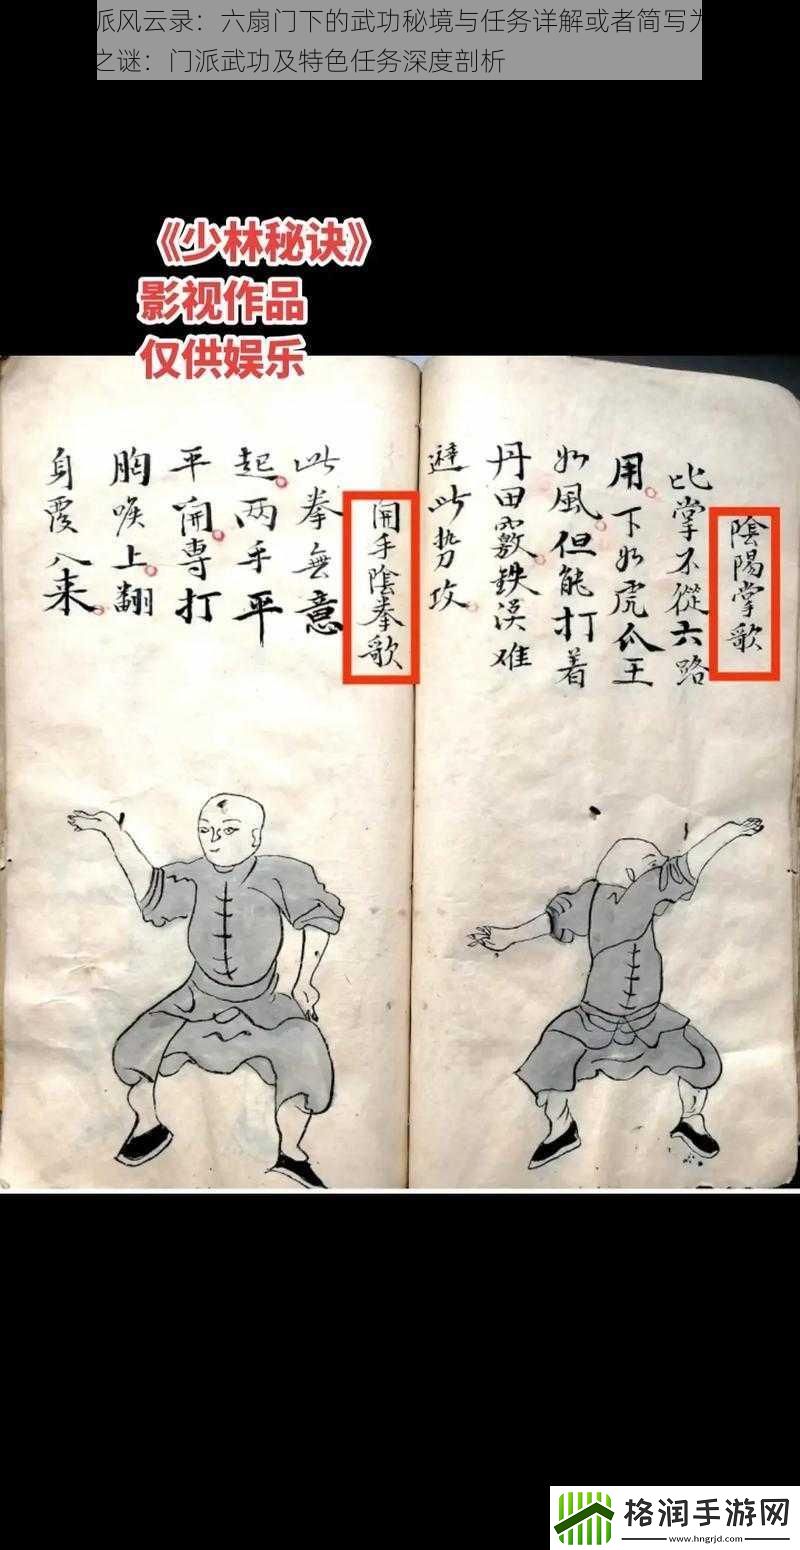 派风云录：六扇门下的武功秘境与任务详解或者简写为
之谜：门派武功及特色任务深度剖析
《少林秘诀》
影视作品
仅供娱乐
陰陽掌歌
比掌不從六路
用下如虎爪王
如風但能打着
丹田竅鉄漢难
避此势攻
開手陰拳歌
此拳無意
起两手平
平開專打
胸喉上翻
身覆八来
格润手游网
www.hngrjd.com